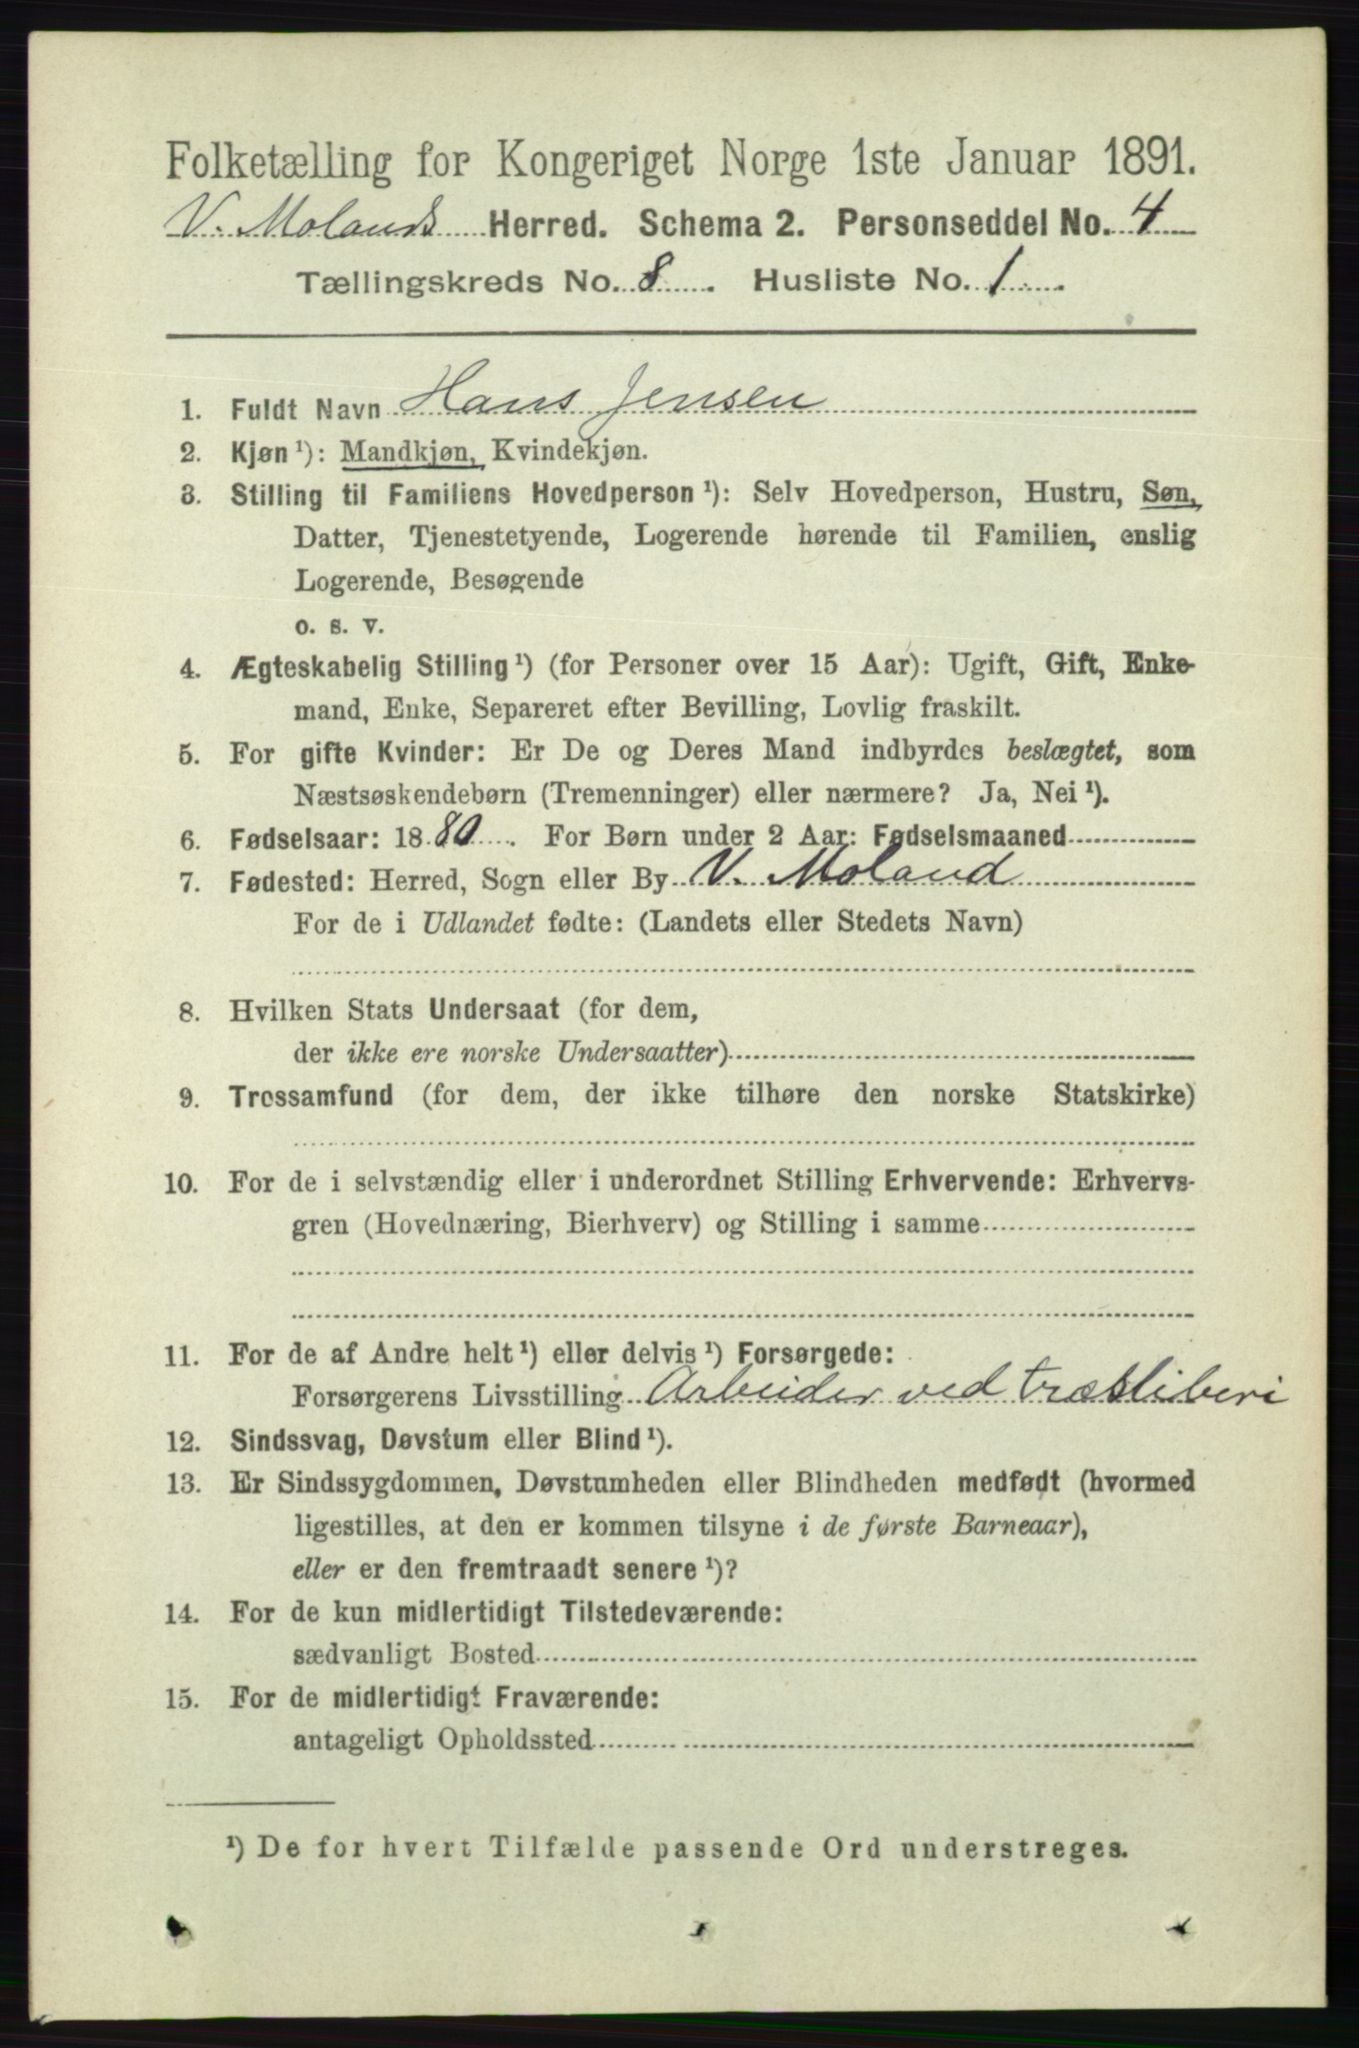 Folketælling for Kongeriget Norge 1ste Januar 1891.
V. Molands Herred. Schema 2. Personseddel No. 4
Tællingskreds No. 8. Husliste No. 1.
1. Fuldt Navn Hans Jensen
2. Kjøn ¹): Mandkjøn, Kvindekjøn.
3. Stilling til Familiens Hovedperson ¹): Selv Hovedperson, Hustru, Søn,
Datter, Tjenestetyende, Logerende hørende til Familien, enslig
Logerende, Besøgende
o. s. v.
4. Ægteskabelig Stilling ¹) (for Personer over 15 Aar): Ugift, Gift, Enke-
mand, Enke, Separeret efter Bevilling, Lovlig fraskilt.
5. For gifte Kvinder: Er De og Deres Mand indbyrdes beslægtet, som
Næstsøskendebørn (Tremenninger) eller nærmere? Ja, Nei ¹).
6. Fødselsaar: 1880. For Børn under 2 Aar: Fødselsmaaned
7. Fødested: Herred, Sogn eller By V. Moland
For de i Udlandet fødte: (Landets eller Stedets Navn)
8. Hvilken Stats Undersaat (for dem,
der ikke ere norske Undersaatter)
9. Trossamfund (for dem, der ikke tilhøre den norske Statskirke)
10. For de i selvstændig eller i underordnet Stilling Erhvervende: Erhvervs-
gren (Hovednæring, Bierhverv) og Stilling i samme
11. For de af Andre helt ¹) eller delvis ¹) Forsørgede:
Forsørgerens Livsstilling Arbeider ved træsliberi
12. Sindssvag, Døvstum eller Blind ¹).
13. Er Sindssygdommen, Døvstumheden eller Blindheden medfødt (hvormed
ligestilles, at den er kommen tilsyne i de første Barneaar),
eller er den fremtraadt senere ¹)?
14. For de kun midlertidigt Tilstedeværende:
sædvanligt Bosted
15. For de midlertidigt Fraværende:
antageligt Opholdssted
¹) De for hvert Tilfælde passende Ord understreges.